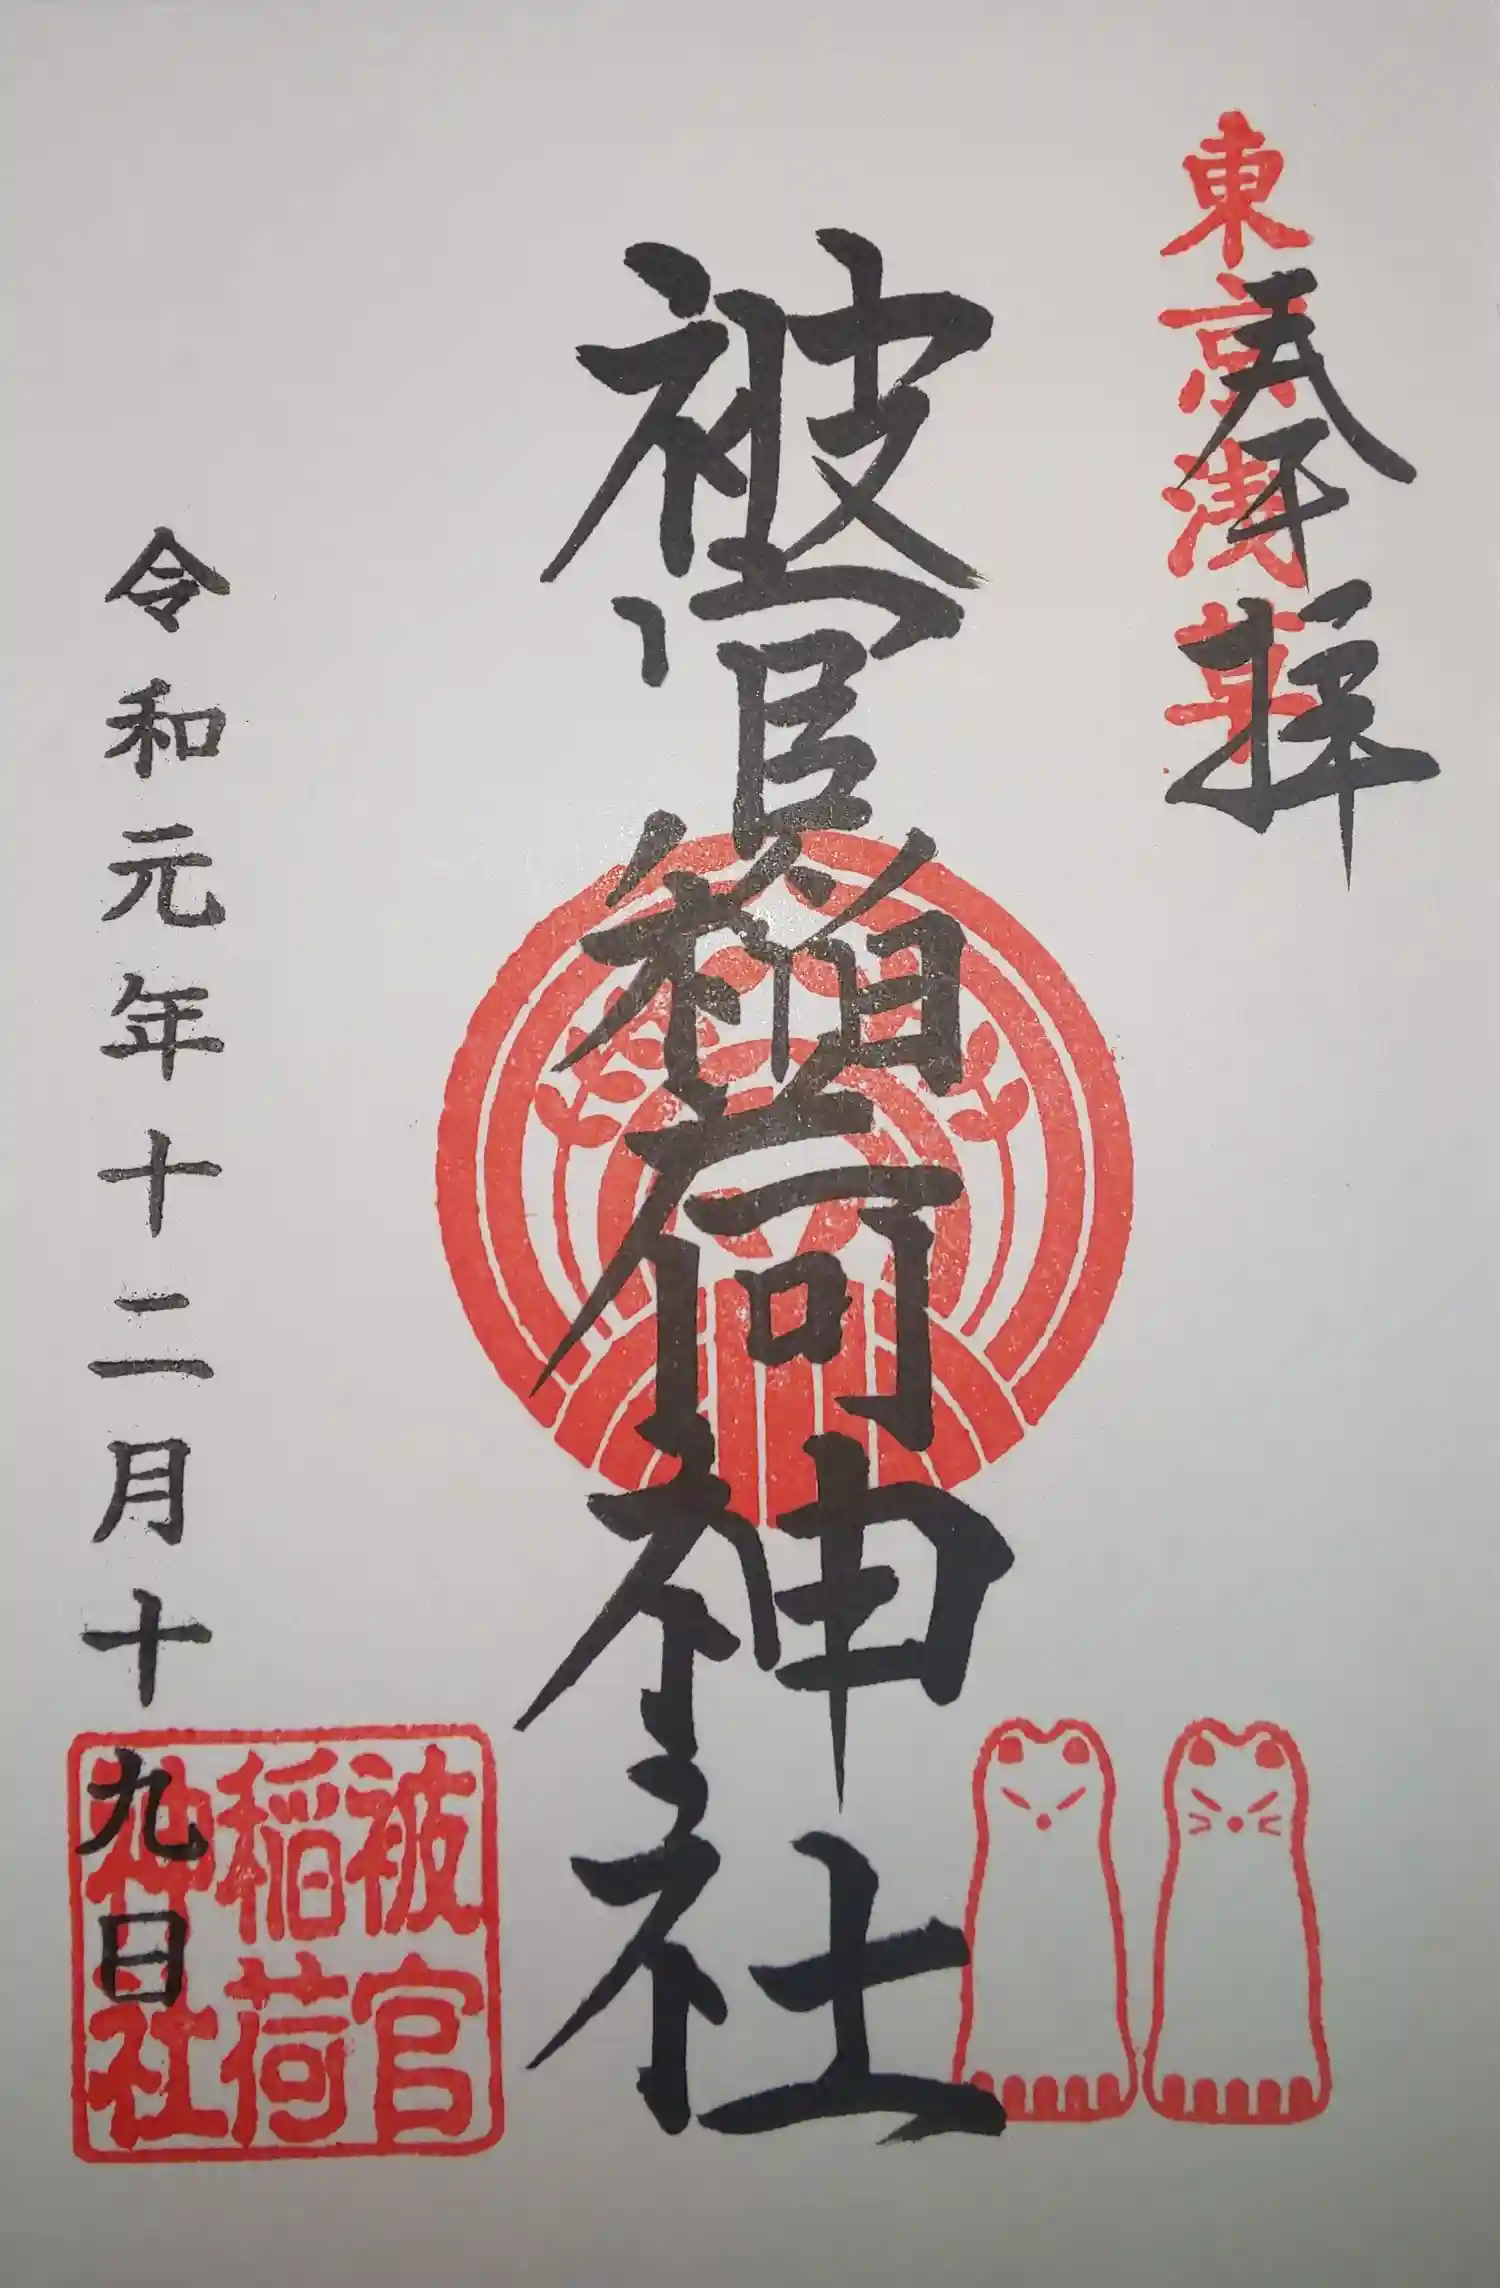 東京浅草
奉拝
被官稲荷神社
令和元年十二月十九日
被官
稲荷
神社